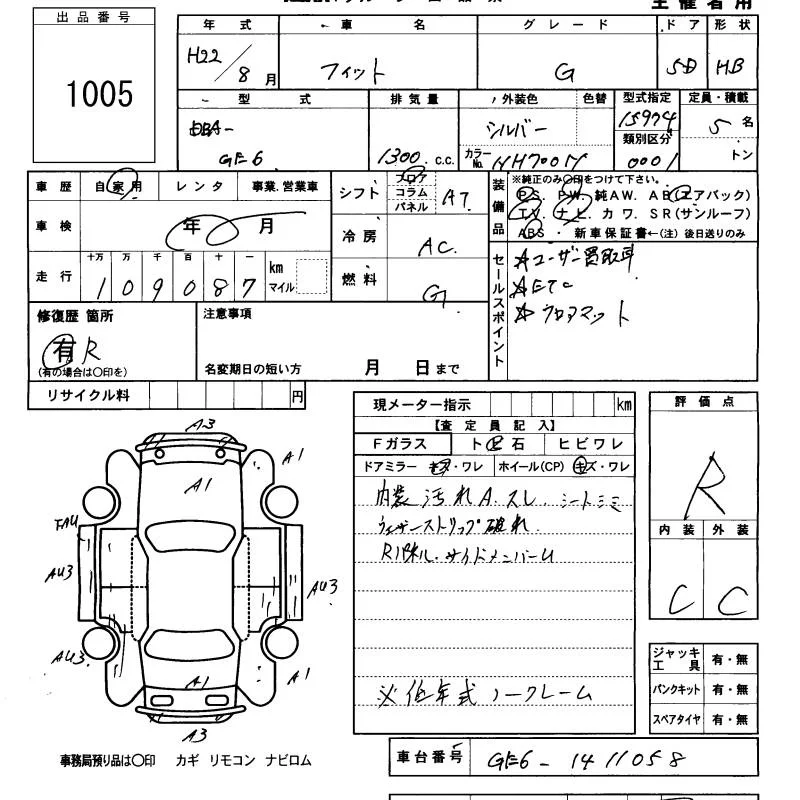 出品番号
1005
主催者用
年式 車名 グレード ドア 形状
H22/8月 フィット G 5D HB
型式 排気量 外装色 色替 型式指定 定員・積載
DBA- シルバー 15974 5名
類別区分
GE6 1300 c.c. カラーNo. NH700M 0001 トン
車歴 自家用 レンタ 事業.営業車
シフト フロア コラム パネル AT
装備品 ※純正のみ○印をつけて下さい。
P.S. P.W. 純AW. AB(エアバック)
T.V. ナビ. カワ. SR(サンルーフ)
ABS ・ 新車保証書←(注) 後日送りのみ
車検 年 月
冷房 AC.
走行 十万 万 千 百 十 一
109087 km マイル
燃料 G
セールスポイント
☆ユーザー買取車
☆ETC
☆フロアマット
修復歴 箇所
有 R
(有の場合は○印を)
注意事項
名変期日の短い方 月 日まで
リサイクル料 円
現メーター指示 km
【査定員記入】
Fガラス トビ石 ヒビワレ
ドアミラー キズ・ワレ ホイール(CP) キズ・ワレ
内装 汚れ A.スレ. シートミミ
ウェザーストリップ破れ.
サイドメンバーU
※低年式 ノークレーム
評価点
R
内装 外装
C C
ジャッキ工具 有・無
パンクキット 有・無
スペアタイヤ 有・無
A3
A1
A1
AU3
AU3
AU3
A1
A1
A3
事務局預り品は○印 カギ リモコン ナビロム
車台番号 GE6-1411058